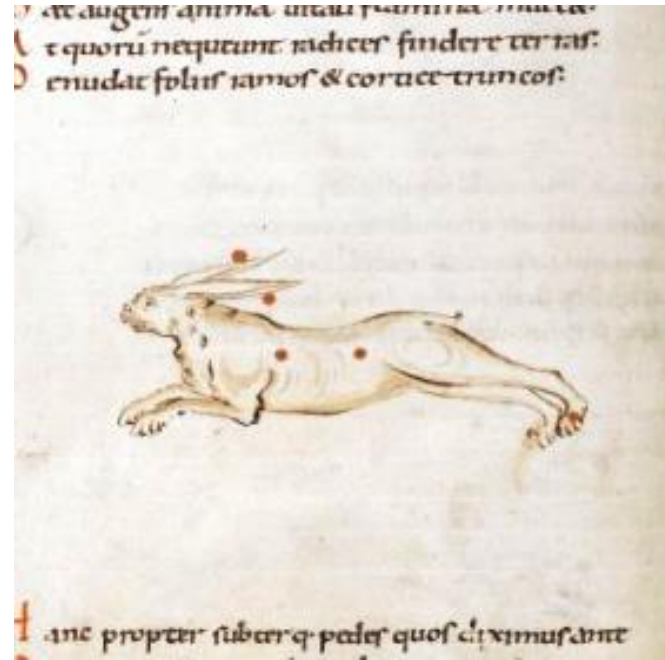 anima uitali mulcet·
At quorū nequeunt radices findere terras:
Denudat foliis ramos & cortice truncos:
Hanc propter subterq· pedes quos diximus ante